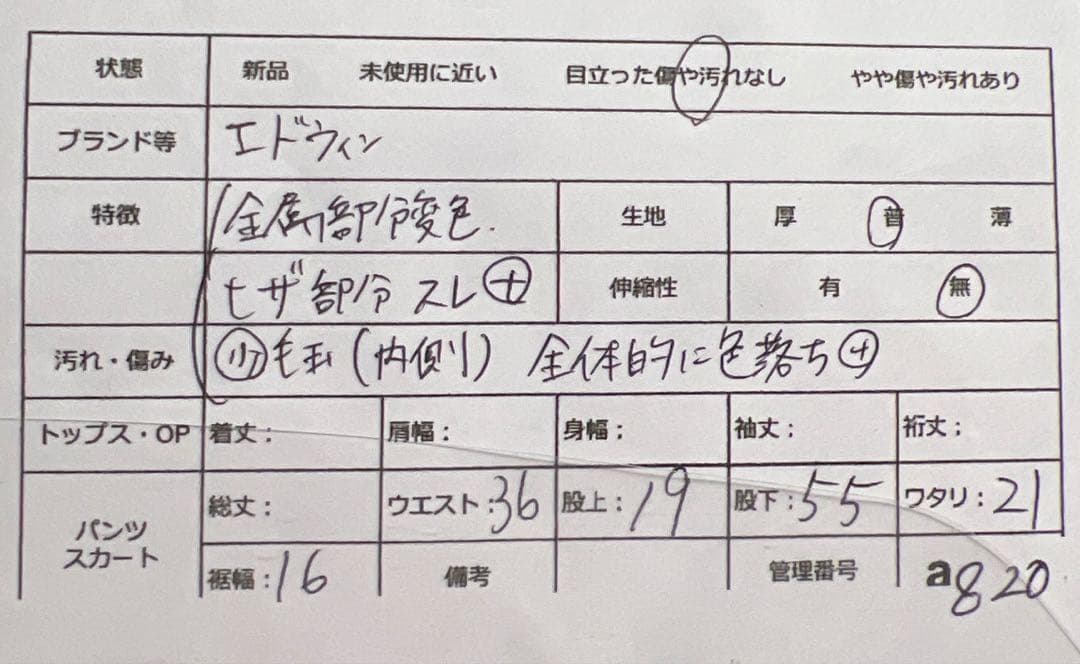 状態 新品 未使用に近い 目立った傷や汚れなし やや傷や汚れあり
ブランド等 エドウィン
特徴 金属部分変色. 生地 厚 普 薄
ヒザ部分 スレ 伸縮性 有 無
汚れ・傷み 少 毛玉(内側) 全体的に色落ち
トップス・OP 着丈: 肩幅: 身幅: 袖丈: 裄丈:
パンツ スカート 総丈: ウエスト:36 股上:19 股下:55 ワタリ:21
裾幅:16 備考 管理番号 a820